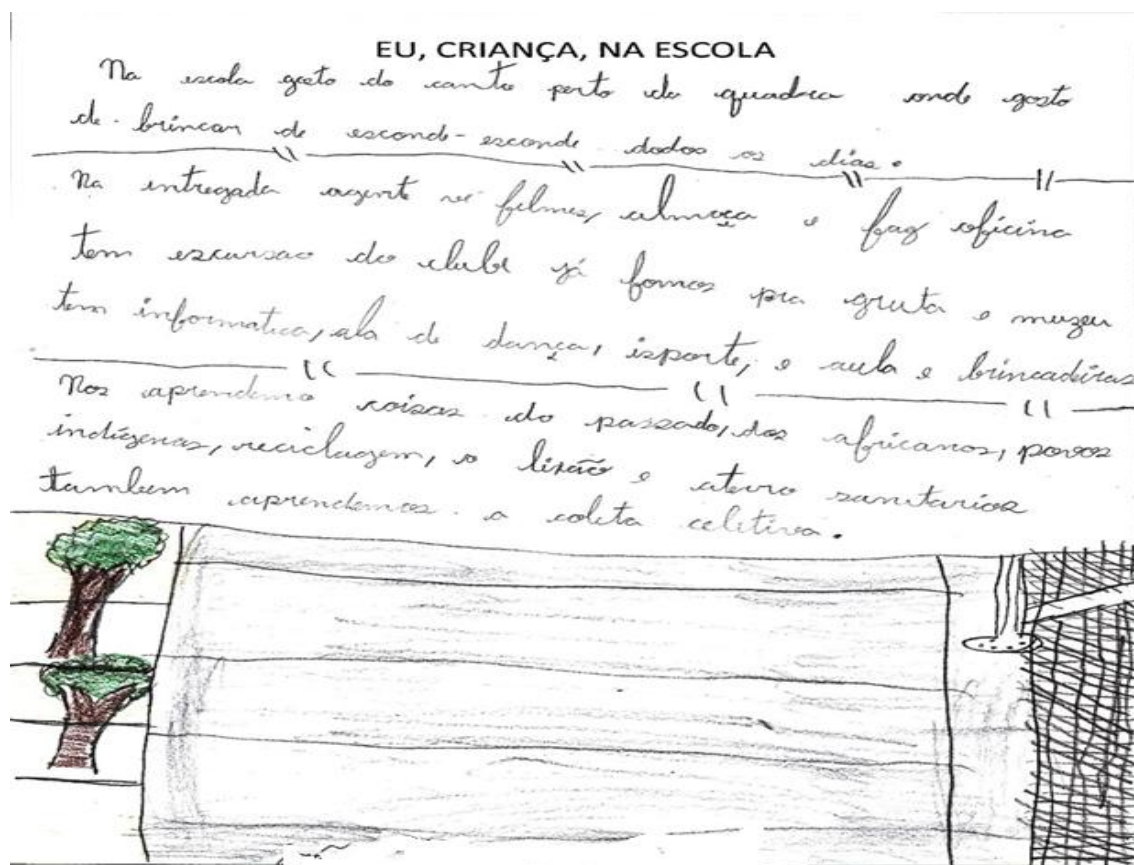 EU, CRIANÇA, NA ESCOLA
Na escola gosto do canto perto da quadra onde gosto
de brincar de esconde-esconde dodos os dias.
Na integrada agente vê filmes, almoça e faz oficina
tem escursao do clube já fomos pra gruta e muzeu
tem informatica, ala de dança, isporte, e aula e brincadeiras
Nos aprendemo coisas do passado, dos africanos, povos
indígenas, reciclagem, o lixão e aterro sanitarios
tambem aprendemos a coleta celetiva.